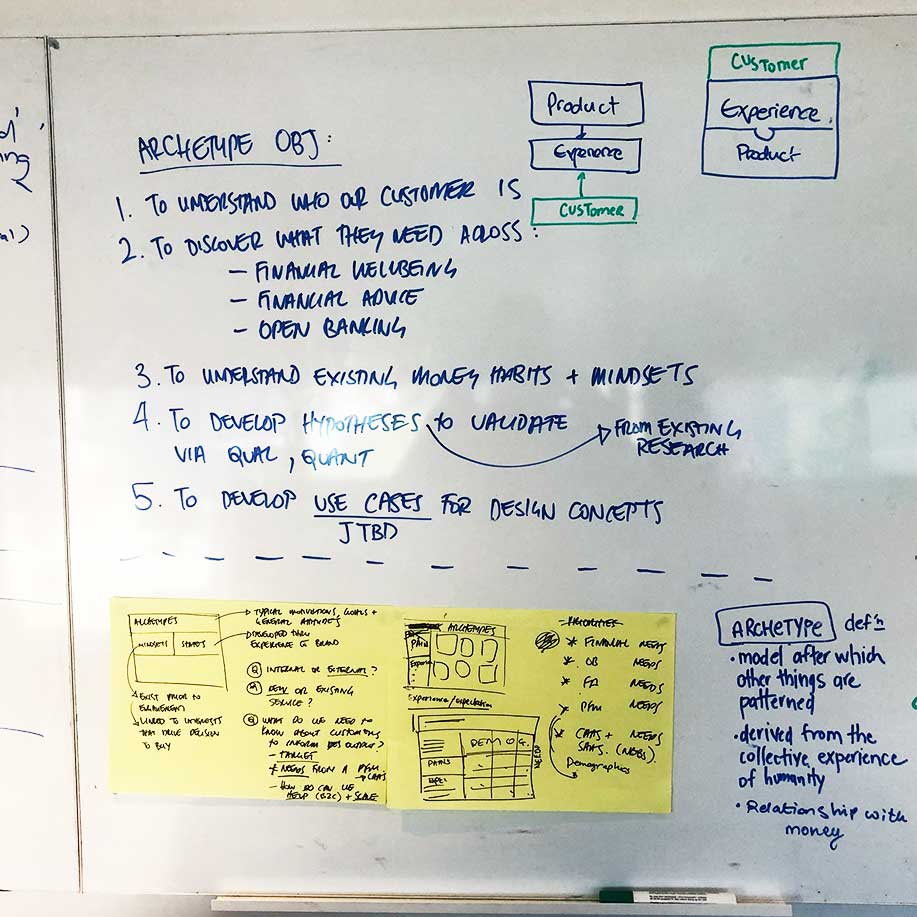 ARCHETYPE OBJ:
1. TO UNDERSTAND WHO OUR CUSTOMER IS
2. TO DISCOVER WHAT THEY NEED ACROSS:
– FINANCIAL WELLBEING
– FINANCIAL ADVICE
– OPEN BANKING
3. TO UNDERSTAND EXISTING MONEY HABITS + MINDSETS
4. TO DEVELOP HYPOTHESES to VALIDATE
VIA QUAL, QUANT
FROM EXISTING
RESEARCH
5. TO DEVELOP USE CASES FOR DESIGN CONCEPTS
JTBD
Product
Experience
CUSTOMER
CUSTOMER
Experience
Product
ARCHETYPES
MINDSETS STATES
TYPICAL MOTIVATIONS, GOALS +
GENERAL ATTITUDES
DEVELOPED THRU
EXPERIENCE OF BRAND
EXIST PRIOR TO
ENGAGEMENT
LINKED TO INTERESTS
THAT DRIVE DECISION
TO BUY
Q INTERNAL OR EXTERNAL?
NEW OR EXISTING
SERVICE?
Q WHAT DO WE NEED TO
KNOW ABOUT CUSTOMERS
TO INFORM DES OUTPUT?
– TARGET
NEEDS FROM A PFM
– HOW CAN WE
HELP (B2C) + SCALE
ARCHETYPES
PAIN
Experience/expectation
DEMOG.
PAINS
NEED
* FINANCIAL NEEDS
* OB NEEDS
* FA NEEDS
* PFM NEEDS
* CAAS + NEEDS
SAAS.
Demographics
ARCHETYPE def'n
• model after which
other things are
patterned
• derived from the
collective experience
of humanity
• Relationship with
money